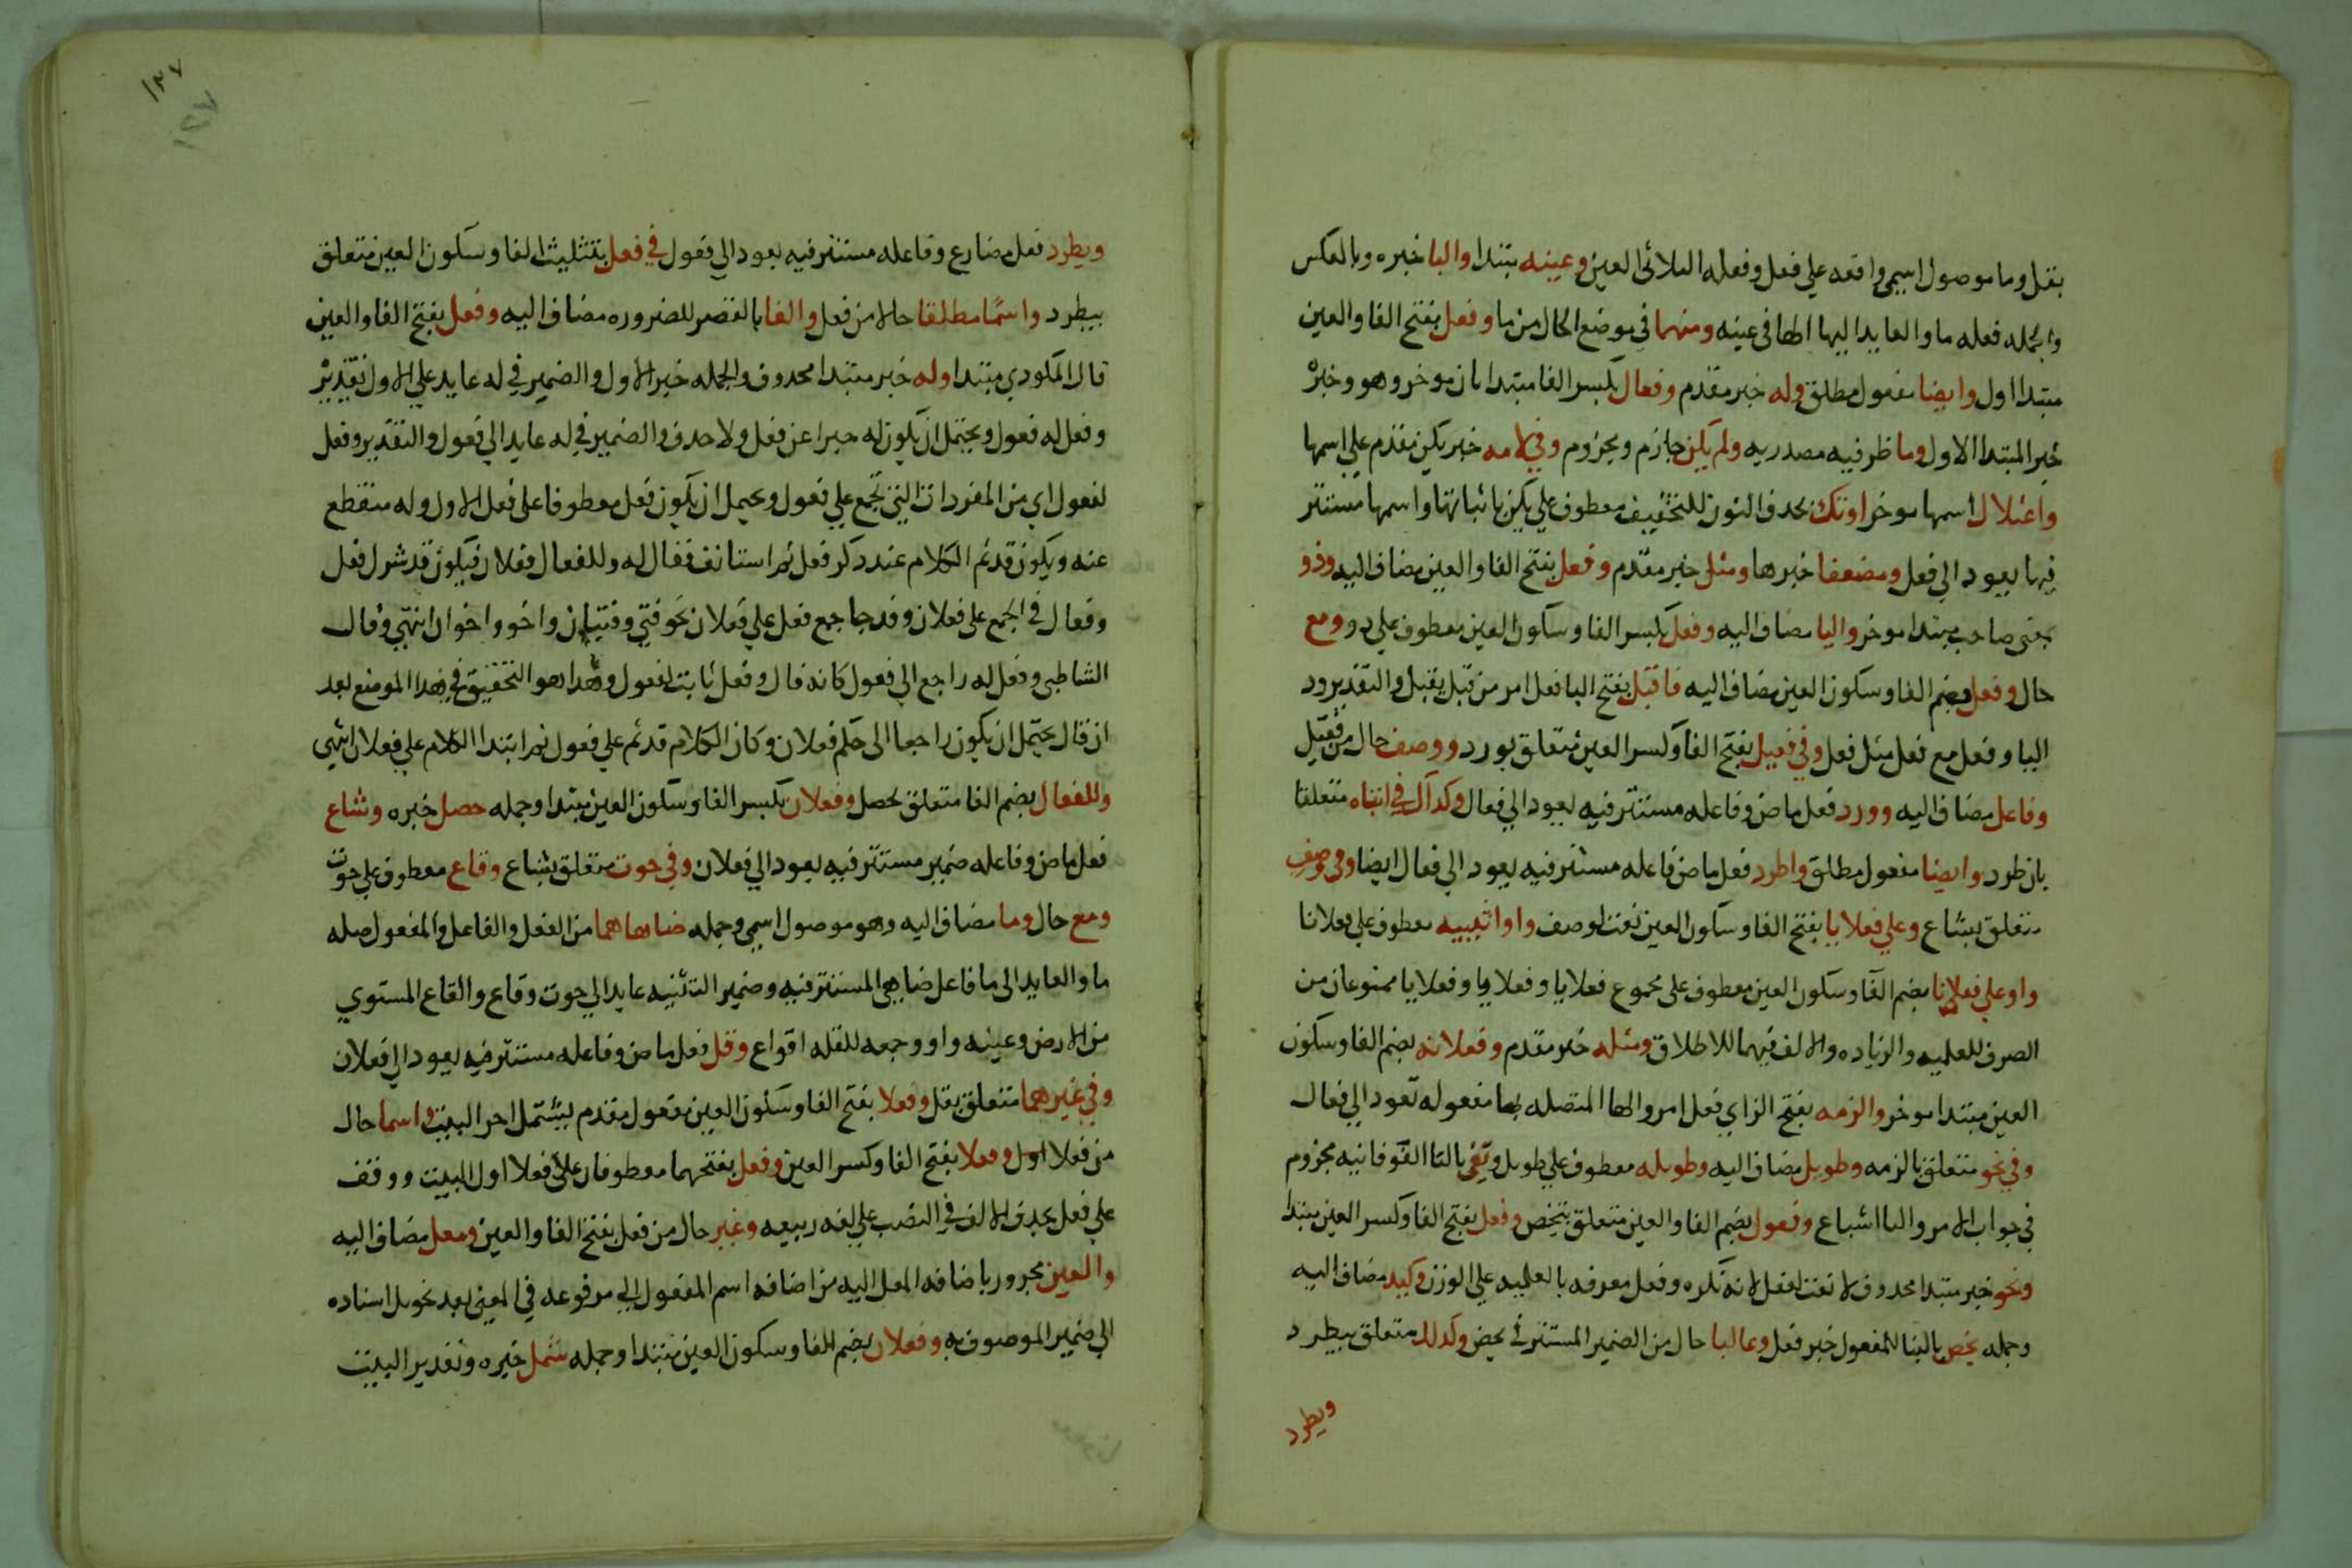 بقل وما موصول اسمي واقعه علي فعل وفعله الثلاثي العين وعينه مبتدا واليا خبره وبالعكس
والجمله فعله ما والعايد اليها الها في عينه ومنهما في موضع الحال من ما وفعل بفتح الفا والعين
مبتدا اول وايضا مفعول مطلق وله خبر مقدم وفعال بكسر الفا مبتدا ثان موخر وهو وخبره
خبر المبتدا الاول وما ظرفيه مصدريه ولم يكن جازم ومجزوم وفي لامه خبر يكن مقدم علي اسمها
واعتلال اسمها موخر اوتك بحذف النون للتخفيف معطوف علي يكن باثباتها واسمها مستتر
فيها يعود الي فعل ومضعفا خبرها ومثل خبر مقدم وفعل بفتح الفا والعين مضاف اليه وذو
بمعني صاحب مبتدا موخر واليا مضاف اليه وفعل بكسر الفا وسكون العين معطوف علي ذو ومع
حال وفعل بضم الفا وسكون العين مضاف اليه فاقبل بفتح البا فعل امر من قبل يقبل والتقدير وذ
اليا وفعل مع فعل مثل فعل وفي فعيل بفتح الفا وكسر العين متعلق بورد ووصف حال من فعيل
وفاعل مضاف اليه وورد فعل ماض وفاعله مستتر فيه يعود الي فعال وكذاك في انثاه متعلقا
بان طرد وايضا مفعول مطلق واطرد فعل ماض فاعله مستتر فيه يعود الي فعال ايضا وفي وصف
متعلق بشاع وعلي فعلايا بفتح الفا وسكون العين نعت لوصف واو انثييه معطوف علي فعلانا
واو علي فعلانا بضم الفا وسكون العين معطوف علي مجموع فعلايا وفعلايا وفعلايا ممنوعان من
الصرف للعلميه والزياده والالف فيهما للاطلاق ومثله خبر مقدم وفعلانه بضم الفا وسكون
العين مبتدا موخر والزمه بفتح الزاي فعل امر والها المتصله بها مفعوله تعود الي فعال
وفي نحو متعلق بالزمه وطويل مضاف اليه وطويله معطوف علي طويل وتفي بالتا الفوقانيه مجزوم
في جواب الامر واليا اشباع وفعول بضم الفا والعين متعلق بيخص وفعل بفتح الفا وكسر العين مبتدا
ونحو خبر مبتدا محذوف لا نعت لفعل لانه نكره وفعل معرفه بالعلميه علي الوزن وكبد مضاف اليه
وجمله يخص بالبنا للمفعول خبر فعل وغالبا حال من الضمير المستتر في يخص وكذلك متعلق بيطرد
ويطرد
١٣٧
١٢٧
ويطرد فعل مضارع وفاعله مستتر فيه يعود الي فعول في فعل بتثليث الفا وسكون العين متعلق
بيطرد واسما مطلقا حالا من فعل والفا بالقصر للضروره مضاف اليه وفعل بفتح الفا والعين
قال المكودي مبتدا وله خبر مبتدا محذوف والجمله خبر الاول والضمير في له عايد علي الاول تقديره
وفعل له فعول ويحتمل ان يكون له خبرا عن فعل ولا حذف والضمير في له عايد الي فعول والتقدير وفعل
لفعول اي من المفردات التي تجمع علي فعول ويحتمل ان يكون فعل معطوفا علي فعل الاول وله منقطع
عنه ويكون قد تم الكلام عند ذكر فعل ثم استانف فقال له وللفعال فعلان فيكون قد شرك فعل
وفعال في الجمع علي فعلان وقد جا جمع فعل علي فعلان نحو فتي وفتيان واخو واخوان انتهي وقال
الشاطبي وفعل له راجع الي فعول كانه قال وفعل ثابت لفعول وهذا هو التحقيق في هذا الموضع بعد
ان قال يحتمل ان يكون راجعا الي حكم فعلان وكان الكلام قد تم علي فعول ثم ابتدا الكلام علي فعلان انتهي
وللفعال بضم الفا متعلق بحصل وفعلان بكسر الفا وسكون العين مبتدا وجمله حصل خبره وشاع
فعل ماض وفاعله ضمير مستتر فيه يعود الي فعلان وفي حوت متعلق بشاع وقاع معطوف علي حوت
ومع حال وما مضاف اليه وهو موصول اسمي وجمله ضاهاهما من الفعل والفاعل والمفعول صله
ما والعايد الي ما فاعل ضاهي المستتر فيه وضمير التثنيه عايد الي حوت وقاع والقاع المستوي
من الارض وعينه واو وجمعه للقله اقواع وقل فعل ماض وفاعله مستتر فيه يعود الي فعلان
وفي غيرهما متعلق بقل وفعلا بفتح الفا وسكون العين مفعول مقدم ليشمل اخر البيت واسما حال
من فعلا اول وفعلا بفتح الفا وكسر العين وفعل بفتحهما معطوفان علي فعلا اول البيت ووقف
علي فعل بحذف الالف في النصب علي لغه ربيعه وغير حال من فعل بفتح الفا والعين ومعل مضاف اليه
والعين مجرور باضافه المعل اليه من اضافه اسم المفعول الي مرفوعه في المعني بعد تحويل اسناده
الي ضمير الموصوف به وفعلان بضم الفا وسكون العين مبتدا وجمله شمل خبره وتقدير البيت